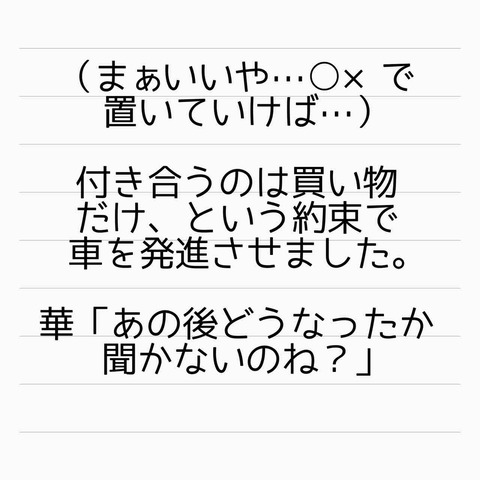 （まぁいいや…○× で
置いていけば…）
付き合うのは買い物
だけ、という約束で
車を発進させました。
華「あの後どうなったか
聞かないのね？」